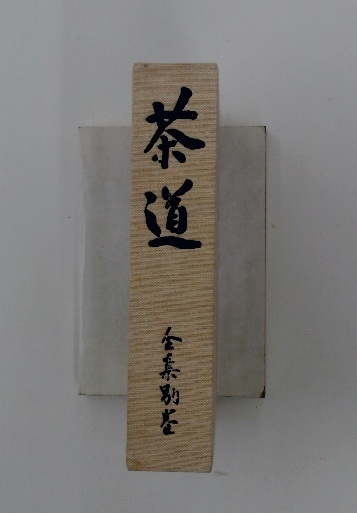 茶道
全集別巻